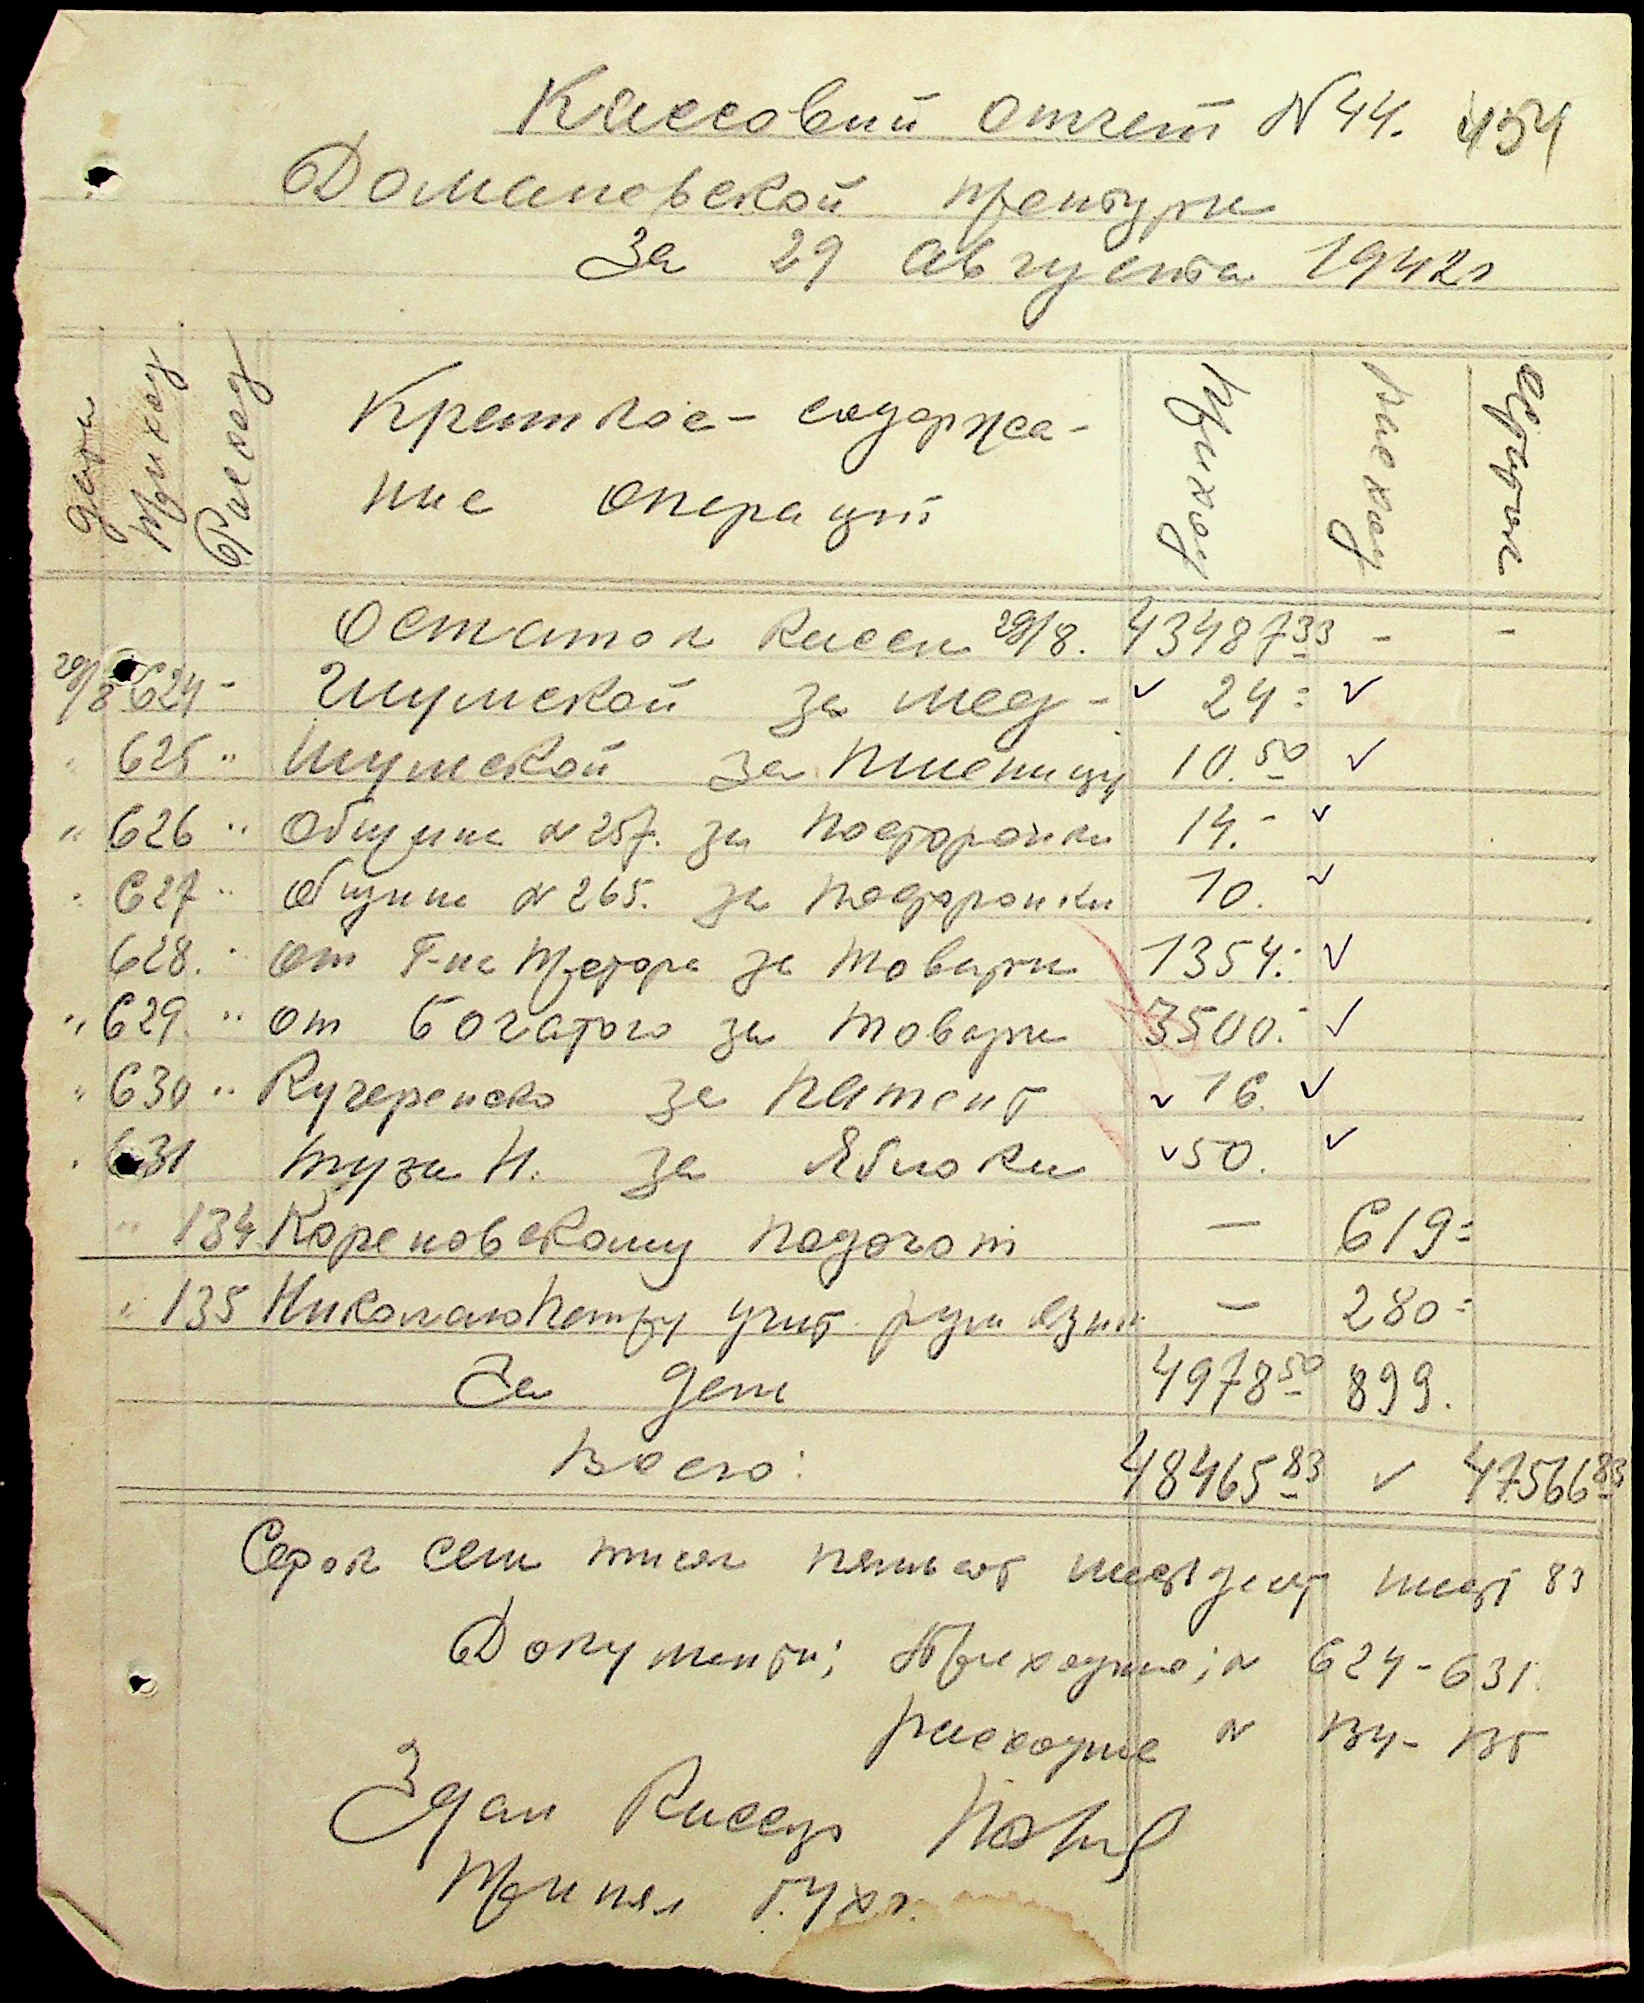 Кассовий отчет N 44. 454
Домановской претури
За 29 августа 1942 г
Дата Приход Расход Краткое - содержа- Приход расход остаток
ние операций
Остаток кассы 29/8. 43487 33 - -
29/8 624 - Шумской за мед - ✓ 24 = ✓
" 625 " Шумской за пшеницу 10.50 ✓
" 626 " Общине N 257. за постройки 14. - ✓
" 627 " Общине N 265. за постройки 10. ✓
628. " от Г-на Претора за товары 1354. - ✓
" 629. " от Богатого за товары 3500. - ✓
" 630 " Кучеренско за патент ✓ 16. ✓
" 631 Н. за Яблоки ✓ 50. ✓
" 134 Кореновскому подотчот — 619 =
" 135 Николаю Петру учит. рум язик — 280 =
За день 4978 50 899.
Всего: 48465 83 ✓ 47566 83
Сорок сем тисяч пятьсот шестдесят шесть 83
Документи; Приходние; N 624 - 631.
расходние N 134 - 135
Здал Кассир
Принял Бухг.